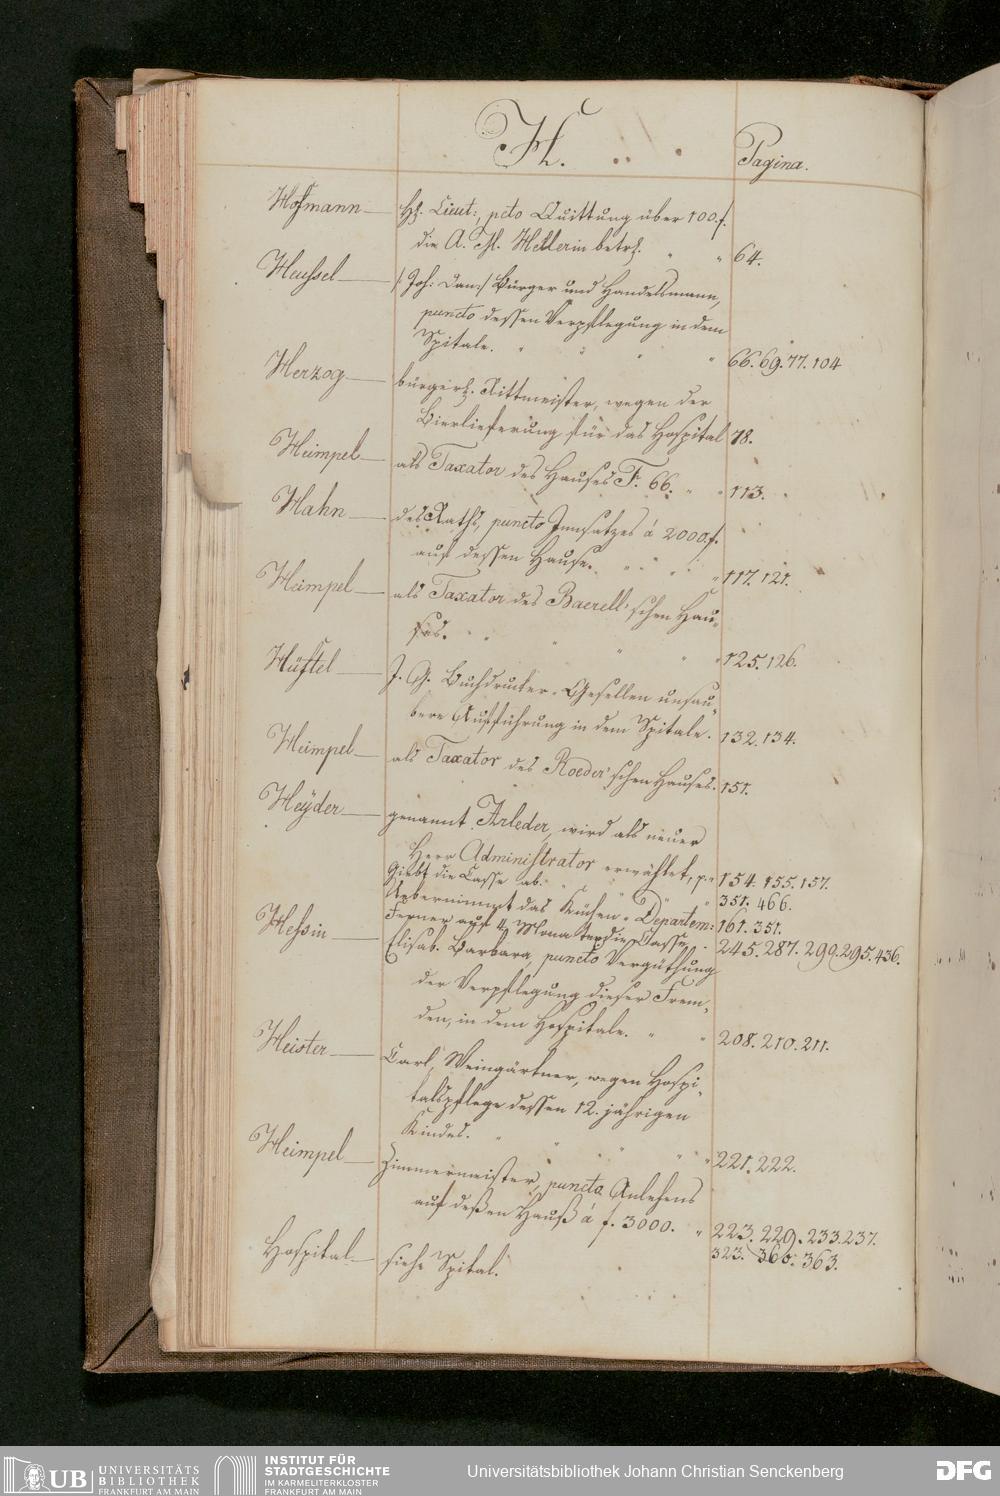 H.
Pagina.
Hofmann — H. Lieut:, pcto Quittung über 100.f.
die A. M. Hellerin betrf. 64.
Heussel — /: Joh: Dan:/ Bürger und Handelsmann,
puncto dessen Verpflegung in dem
Spitale. 66. 69. 77. 104
Herzog — bürgerl. Rittmeister, wegen der
Bierlieferung für das Hospital 78.
Heimpel — als Taxator des Hauses F. 66. 113.
Hahn — des Raths, puncto Innsatzes á 2000f.
auf dessen Hause. 117. 121.
Heimpel — als Taxator des Baerell'schen Hau-
ses. 125. 126.
Hüftel — J. G. Buchdrucker-Gesellen unsau-
bere Aufführung in dem Spitale. 132. 134.
Heimpel — als Taxator des Roeder'schen Hauses. 151.
Heÿder — genannt Arleder, wird als neuer
Herr Administrator erwählet, p. 154. 155. 157.
Giebt die Casse ab. 351. 466.
Uebernimmt das Küchen-Departem: 161. 351.
Ferner auf 4 Monate die Casse. 245. 287. 299. 295. 436.
Hessin — Elisab. Barbara, puncto Vergüthung
der Verpflegung dieser Frem-
den, in dem Hospitale. 208. 210. 211.
Heister — Carl, Weingärtner, wegen Hospi-
talspflege dessen 12. jährigen
Kindes. 221. 222.
Heimpel — Zimmermeister, puncto Anlehens
auf deßen Hauß á f. 3000. 223. 229. 233. 237.
323. 360. 363.
Hospital — siehe Spital.
UB UNIVERSITÄTS
BIBLIOTHEK
FRANKFURT AM MAIN
INSTITUT FÜR
STADTGESCHICHTE
IM KARMELITERKLOSTER
FRANKFURT AM MAIN
Universitätsbibliothek Johann Christian Senckenberg
DFG